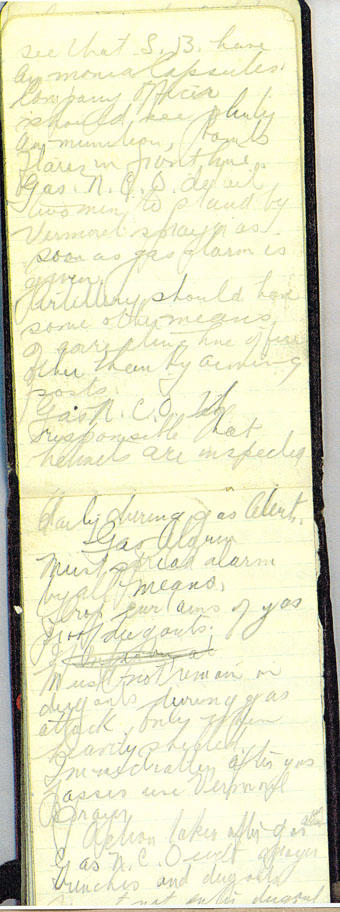 see that S. B. have
ammonia Capsules.
Company Officer
should see plenty
ammunition, bombs
flares in front line.
Gas. N. C. O. detail
two men to stand by
Vermorel sprayer as
soon as gas alarm is
given.
Artillery should have
some other means
of correcting line of fire
other than by aiming
posts.
Gas N. C. O.
responsible that
helmets are inspected
daily during gas Alert.
Gas Alarm
Must spread alarm
by all means.
Drop curtains of gas
proof dugouts.
Must not remain in
dugouts during gas
attack, only when
heavily shelled.
Immediately after gas
passes use Vermorel
Sprayer
Action taken after gas
Gas N. C. O. sprayer
trenches and dugouts
not enter dugout